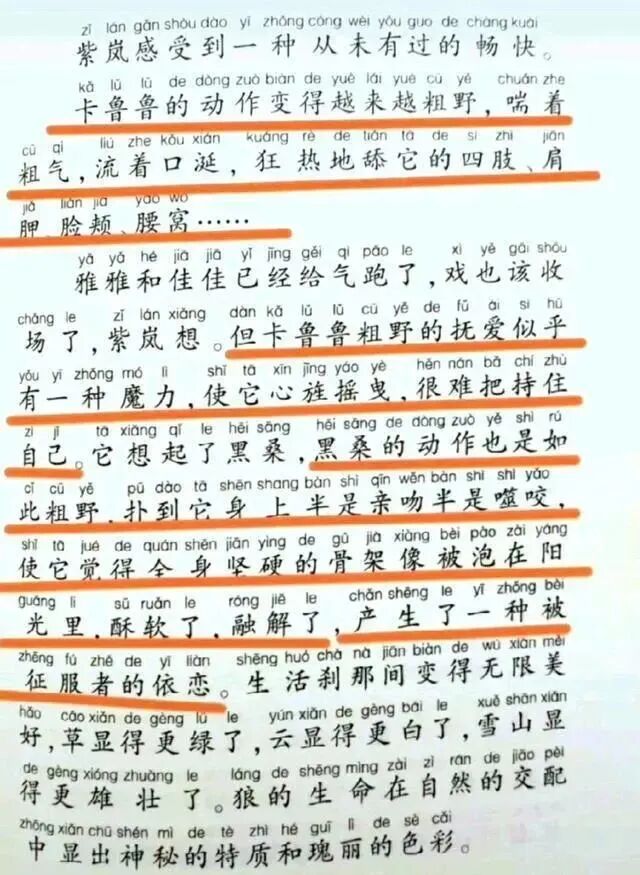 zǐ lán gǎn shòu dào yī zhǒng cóng wèi yǒu guo de chàng kuài
紫岚感受到一种从未有过的畅快。
kǎ lǔ lǔ de dòng zuò biàn de yuè lái yuè cū yě chuǎn zhe
卡鲁鲁的动作变得越来越粗野，喘着
cū qì liú zhe kǒu xián kuáng rè de tiǎn tā de sì zhī jiān
粗气，流着口涎，狂热地舔它的四肢、肩
jiǎ liǎn jiá yāo wō
胛、脸颊、腰窝……
yǎ yǎ hé jiā jiā yǐ jīng gěi qì pǎo le xì yě gāi shōu
雅雅和佳佳已经给气跑了，戏也该收
chǎng le zǐ lán xiǎng dàn kǎ lǔ lǔ cū yě de fǔ ài sì hū
场了，紫岚想。但卡鲁鲁粗野的抚爱似乎
yǒu yī zhǒng mó lì shǐ tā xīn jīng yáo yè hěn nán bǎ chí zhù
有一种魔力，使它心旌摇曳，很难把持住
zì jǐ tā xiǎng qǐ le hēi sāng hēi sāng de dòng zuò yě shì rú
自己。它想起了黑桑，黑桑的动作也是如
cǐ cū yě pū dào tā shēn shang bàn shì qīn wěn bàn shì shì yǎo
此粗野，扑到它身上半是亲吻半是噬咬，
shǐ tā jué de quán shēn jiān yìng de gǔ jià xiàng bèi pào zài yáng
使它觉得全身坚硬的骨架像被泡在阳
guāng li sū ruǎn le róng jiě le chǎn shēng le yī zhǒng bèi
光里，酥软了，融解了，产生了一种被
zhēng fú zhě de yī liàn shēng huó chà nà jiān biàn de wú xiàn měi
征服者的依恋。生活刹那间变得无限美
hǎo cǎo xiǎn de gèng lǜ le yún xiǎn de gèng bái le xuě shān xiǎn
好，草显得更绿了，云显得更白了，雪山显
de gèng xióng zhuàng le láng de shēng mìng zài zì rán de jiāo pèi
得更雄壮了。狼的生命在自然的交配
zhōng xiǎn chū shén mì de tè zhì hé guī lì de sè cǎi
中显出神秘的特质和瑰丽的色彩。